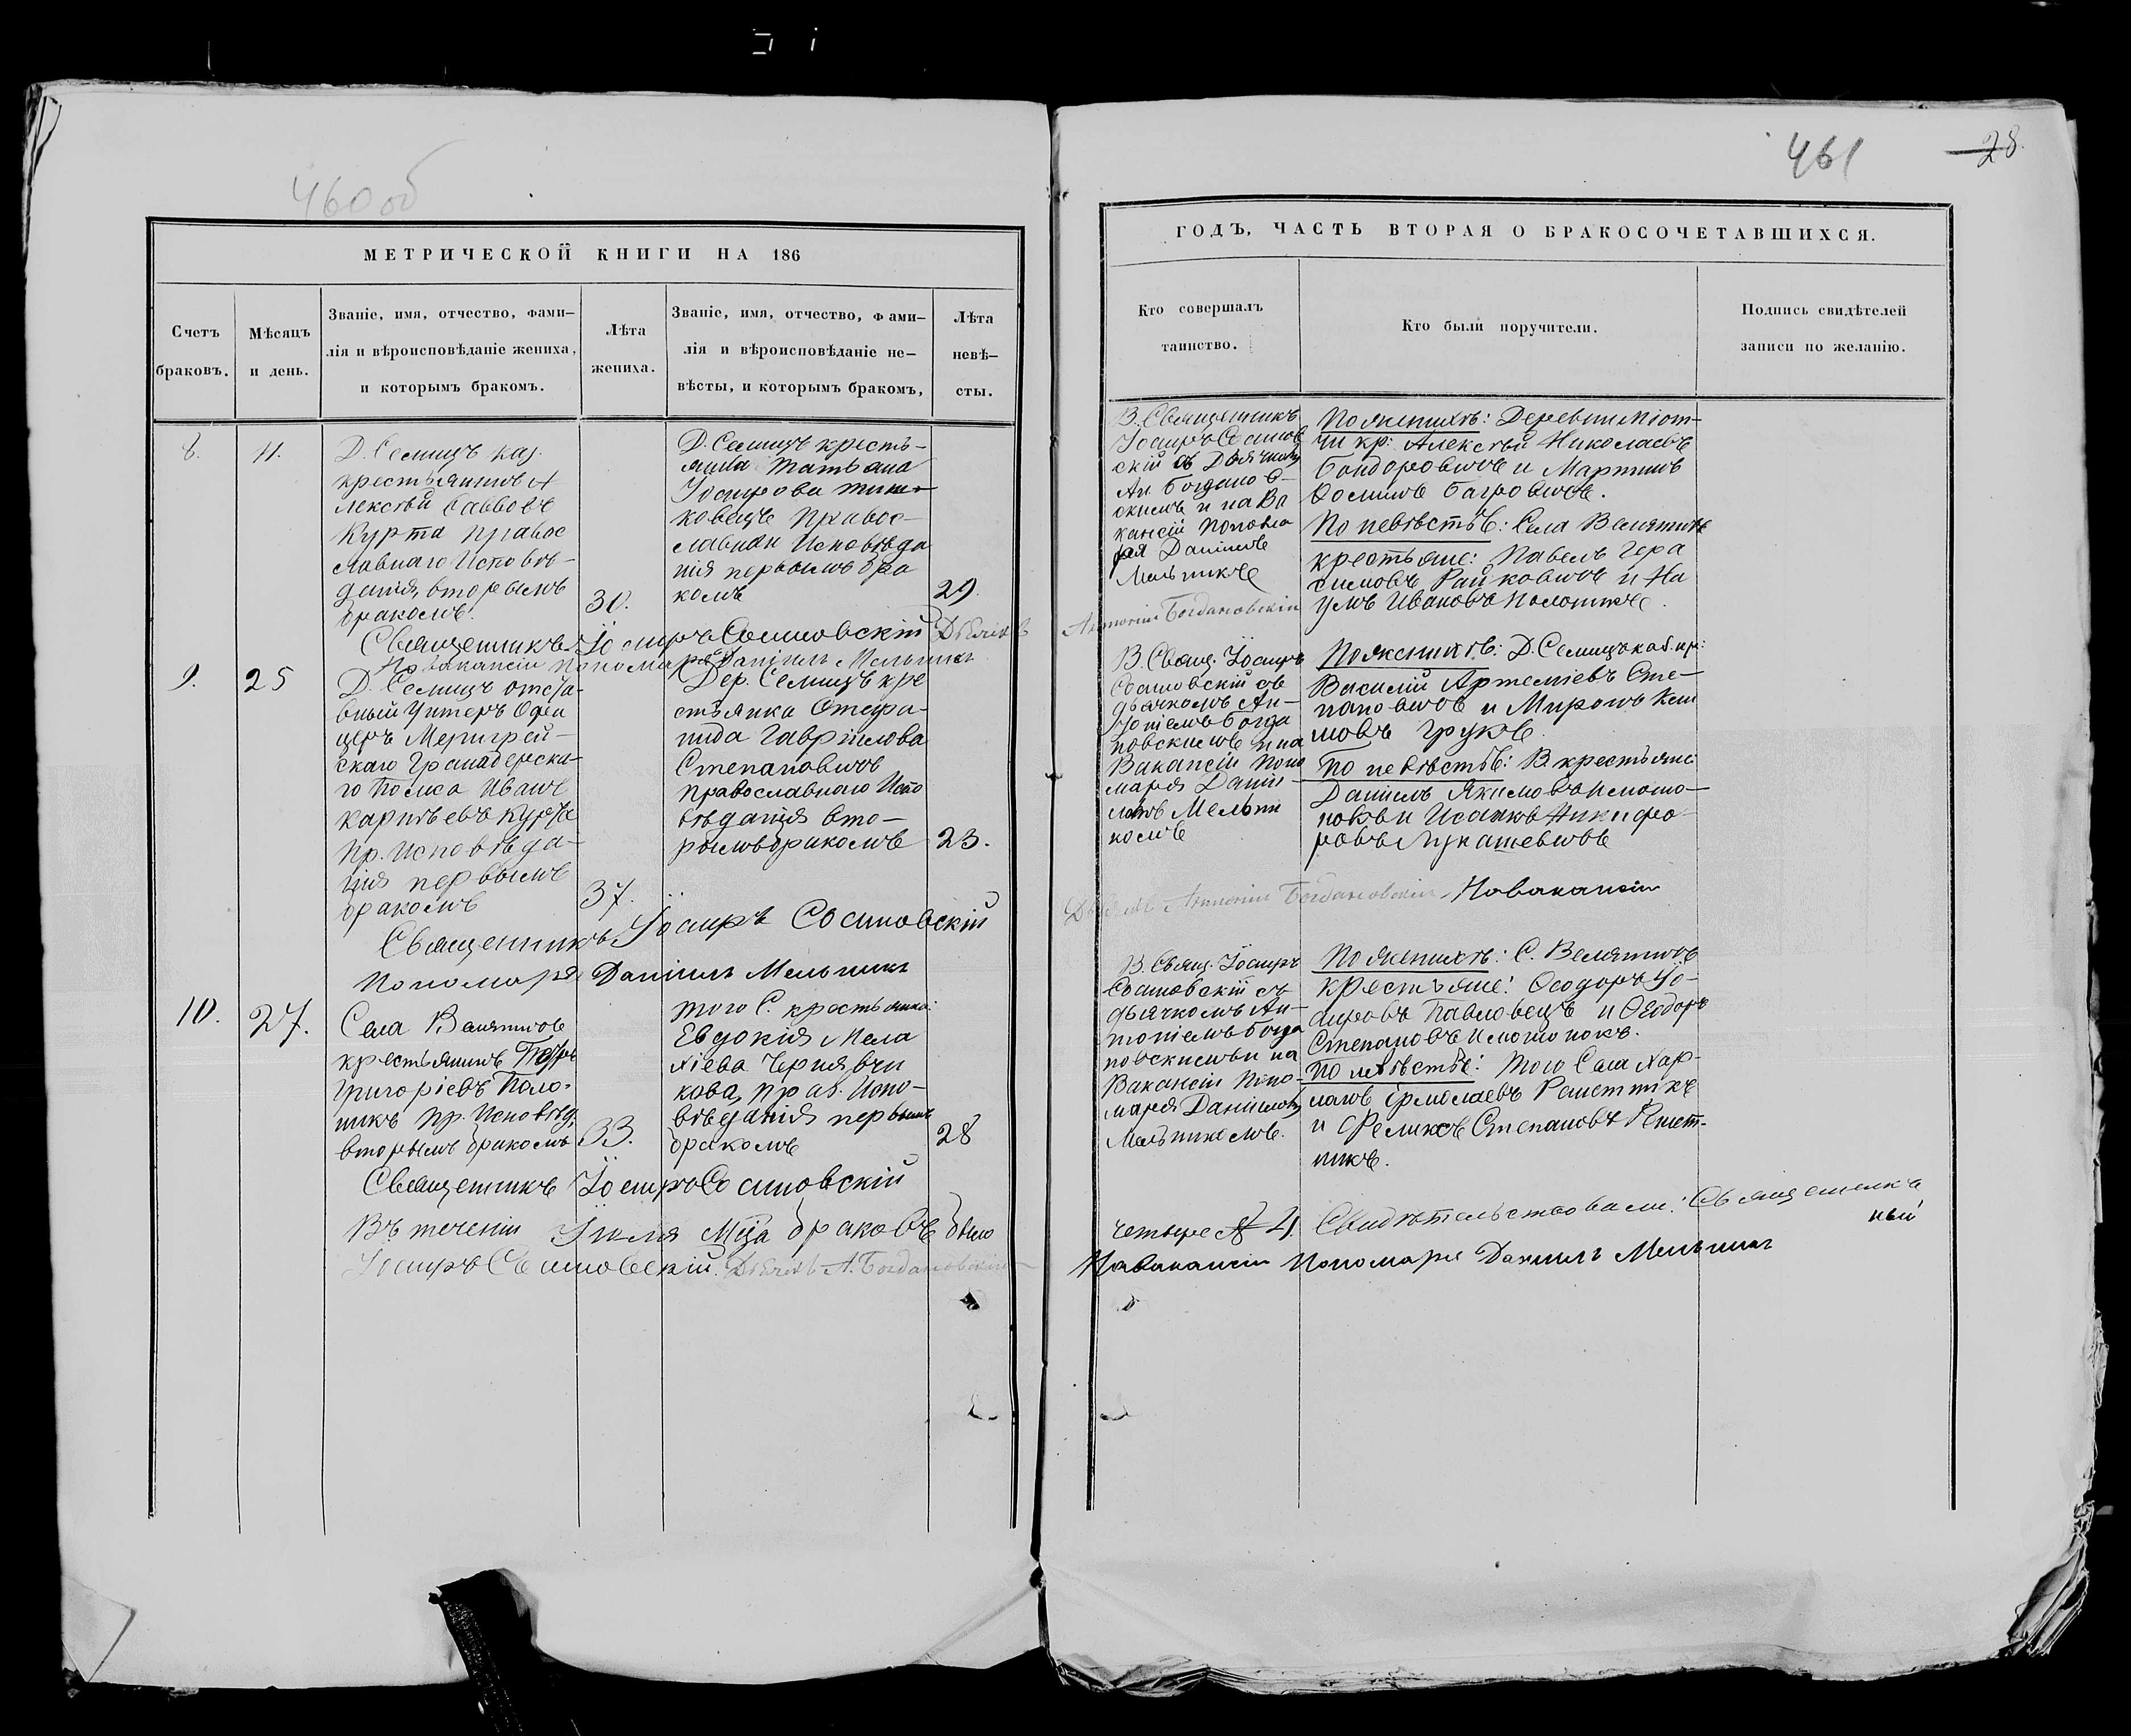 460 об
МЕТРИЧЕСКОЙ КНИГИ НА 186
Счетъ
браковъ.
Мѣсяцъ
и день.
Званіе, имя, отчество, фами-
лія и вѣроисповѣданіе жениха,
и которымъ бракомъ.
Лѣта
жениха.
Званіе, имя, отчество, фами-
лія и вѣроисповѣданіе не-
вѣсты, и которымъ бракомъ,
Лѣта
невѣ-
сты.
8.
11.
Д. Семицъ каз.
крестьянинъ А
лексѣй Саввовъ
Курта правос
лавнаго Исповѣ-
данія, вторымъ
бракомъ.
30.
Д. Семицъ кресть-
янка Татьяна
Іосифова
ковецъ Правос-
лавнаго Исповѣда
нія первымъ бра
комъ
29.
Священникъ Іосифъ Сосиновскій Дьячекъ
На вакансіи пономаря Даніилъ Мельникъ
9.
25
Д. Семицъ отста-
вный Унтеръ Офи
церъ
скаго Гранадерска-
го Полка Иванъ
Карпѣевъ Курта
Пр. Исповѣда-
нія первымъ
бракомъ
37.
Дер. Семицъ кре
стьянка Степа-
нида Гавріилова
Степановичъ
Православнаго Испо
вѣданія вто-
рымъ бракомъ
23.
Священникъ Іосифъ Сосиновскій
Пономаря Даніилъ Мельникъ
10.
27.
Села Велятичъ
крестьянинъ Петръ
Григоріевъ Поло-
никъ Пр. Исповѣд.
вторымъ бракомъ
33.
того С. крестьянка:
Евдокія Мела
хіева Чернявчи
кова, Прав. Испо-
вѣданія первымъ
бракомъ
28
Священникъ Іосифъ Сосиновскій
Въ теченіи Іюля Мца браковъ было
Іосифъ Сосиновскій. Дьячекъ А. Богдановскій
461
28.
ГОДЪ, ЧАСТЬ ВТОРАЯ О БРАКОСОЧЕТАВШИХСЯ.
Кто совершалъ
таинство.
Кто были поручители.
Подпись свидѣтелей
записи по желанію.
В. Священникъ
Іосифъ Сосинов
скій съ Дьячкомъ
Ан. Богданов-
скимъ и на Ва
кансіи понома
ря Даніилъ
Мельникъ
По женихѣ: Деревни Мют-
чи кр: Алексѣй Николаевъ
Бондаровичъ и Мартинъ
Фоминъ Багровичъ.
По невѣстѣ: Села Велятичъ
крестьяне: Павелъ Гера
симовъ Райковичъ и На
умъ Ивановъ Полоникъ.
Антоній Богдановскій
В. Свящ. Іосифъ
Сосиновскій съ
дьячкомъ Ан-
тоніемъ Богда
новскимъ и на
Вакансіи Поно
маря Даніи
ломъ Мельни
комъ
По женихѣ: Д. Семицъ каз. кр:
Василій Артеміевъ Сте-
пановичъ и Миронъ
мовъ Грукъ.
По невѣстѣ: В крестьяне
Даніилъ Якимовъ Исполо-
никъ и Исаакъ Никифо-
ровъ Лукашевичъ
Дьячекъ Антоній Богдановскій На вакансіи
В. Свящ. Іосифъ
Сосиновскій съ
дьячкомъ Ан-
тоніемъ Богда
новскимъ и на
Вакансіи Поно-
маря Даніиломъ
Мельникомъ.
По женихѣ: С. Велятичъ
крестьяне: Ѳеодоръ Іо-
сифовъ Павловецъ и Ѳеодоръ
Степановъ
По невѣстѣ: того Села Хар-
лампъ Ермолаевъ Решетникъ
и Феликсъ Степановъ Решет-
никъ.
четыре 4. Свидѣтельствовали: Священникъ
На вакансіи Пономаря Даніилъ Мельникъ